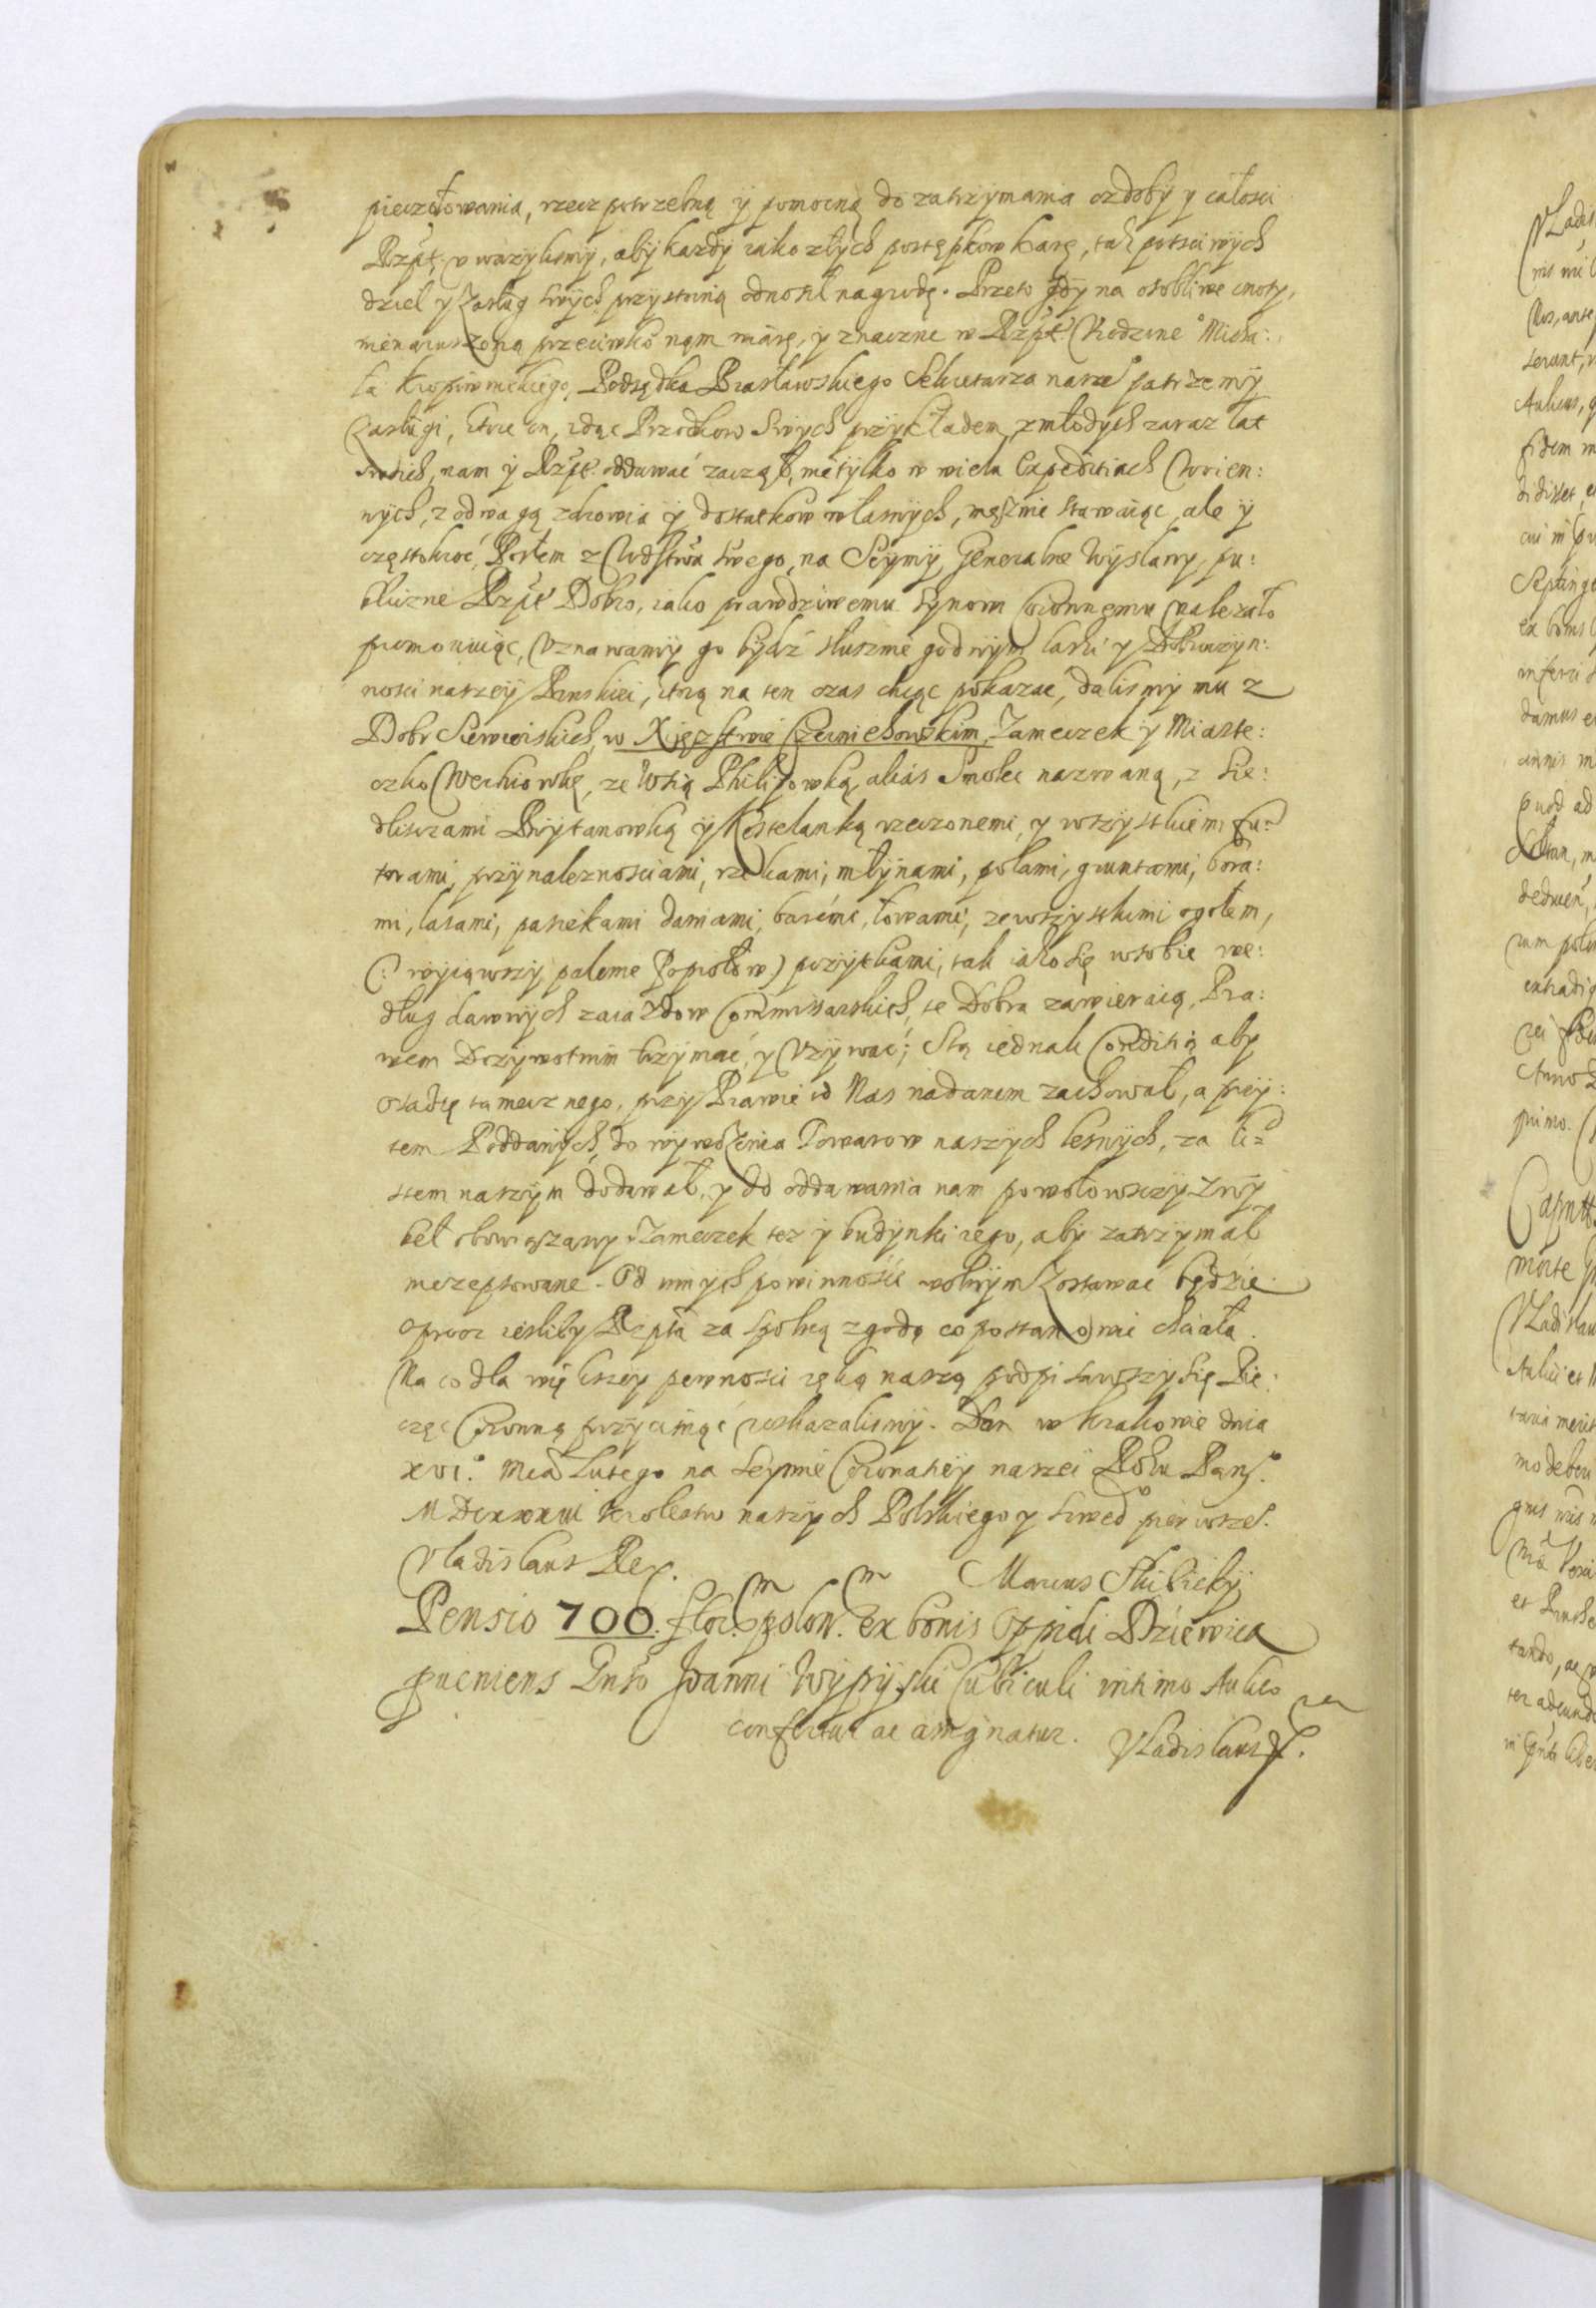 pieczętowania, rzecz potrzebną y pomocną do zatrzymania ozdoby y całosci
Rzpt. uważylismy, aby kazdy iako złych postępkow karę, tak poczciwych
dzieł y zasług swych przystoiną odnosił nagrodę. Przeto gdy na osobliwe cnoty,
nienaruszoną przeciwko nąm wiarę, y znaczne w Rzpt. Urodzone° Micha:
ła Kropiwnickiego, Podsędka Brasławskiego Sekretarza nasze° patrzemy
zasługi, ktore on, idąc Przodkow swych przykładem, z młodych zaraz lat
swoich, nam y Rzpt. oddawać zaczął, nie tylko w wielu Expeditiach woien:
nych, z odwagą zdrowia y dostatkow własnych, mężnie stawaiąc, ale y
częstokroć, Posłem z Wdstwa swego, na Seymy Generalne wysłany, pu:
bliczne Rzpt Dobro, iako prawdziwemu Synowi Coronnemu należało
promowuiąc, Uznawamy go bydź słusznie godnym łaski y Dobroczyn:
nosci naszey Panskiei, ktorą na ten czas chcąc pokazac, dalismy mu z
Dobr Siewierskich, w Xięzstwie Czerniehowskim, Zameczek y Miaste:
czko Werkiowkę, ze Wsią Philipowką, alias Smolec nazwaną, z Sie:
dliszczami Prystanowką y Kostelanką rzeczonemi, y wszystkiemi Fu:
torami, przynaleznosciami, rzekami, młynami, polami, gruntami, bora:
mi, lasami, pasiekami daniami, barcmi, łowami, ze wszystkimi ogołem,
(: wyiąwszy palenie Popiołow) pożytkami, tak iako się w sobie we:
dług dawnych zaiazdow Commissarskich, te Dobra zawieraią, Pra:
wem Dożywotnim trzymać, y używać; Stą iednak Conditią aby
osadę tamecznego, przy Prawie od Nas nadanem zachował, a przy:
tem Poddanych, do wywożenia Towarow naszych lesnych, za li:
stem naszym dodawał, y do oddawania nam powołowszczyzny
beł obowiązany Zameczek tez y budynki iego, aby zatrzymał
niezepsowane. Od innych powinnośći wolnym zostawac będzie
oprocz iesliby Rzpta za spolną zgodą co postanowic chciała.
Na co dla większey pewnosci ręką naszą podpisawszy się Pie:
częć Coronną przycisnąć roskazalismy. Dan w Krakowie dnia
XVI. Mca Lutego na Seymie Coronatiey naszei Roku Pańs°
MDCXXXIII Krolestw naszych Polskiego y Szwed° pierwsze°.
Vladislaus Rex. Marcus Skibicky
Pensio 700. flor. polon. ex bonis Oppidi Drzewica
pueniens Gnso Joanni Wypyski Cubiculi intimo Aulico
confertur ac assignatur. Vladislaus